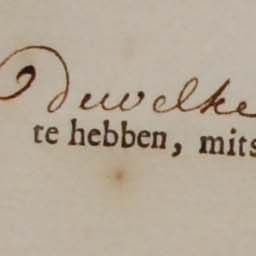 Dewelke
te hebben, mits